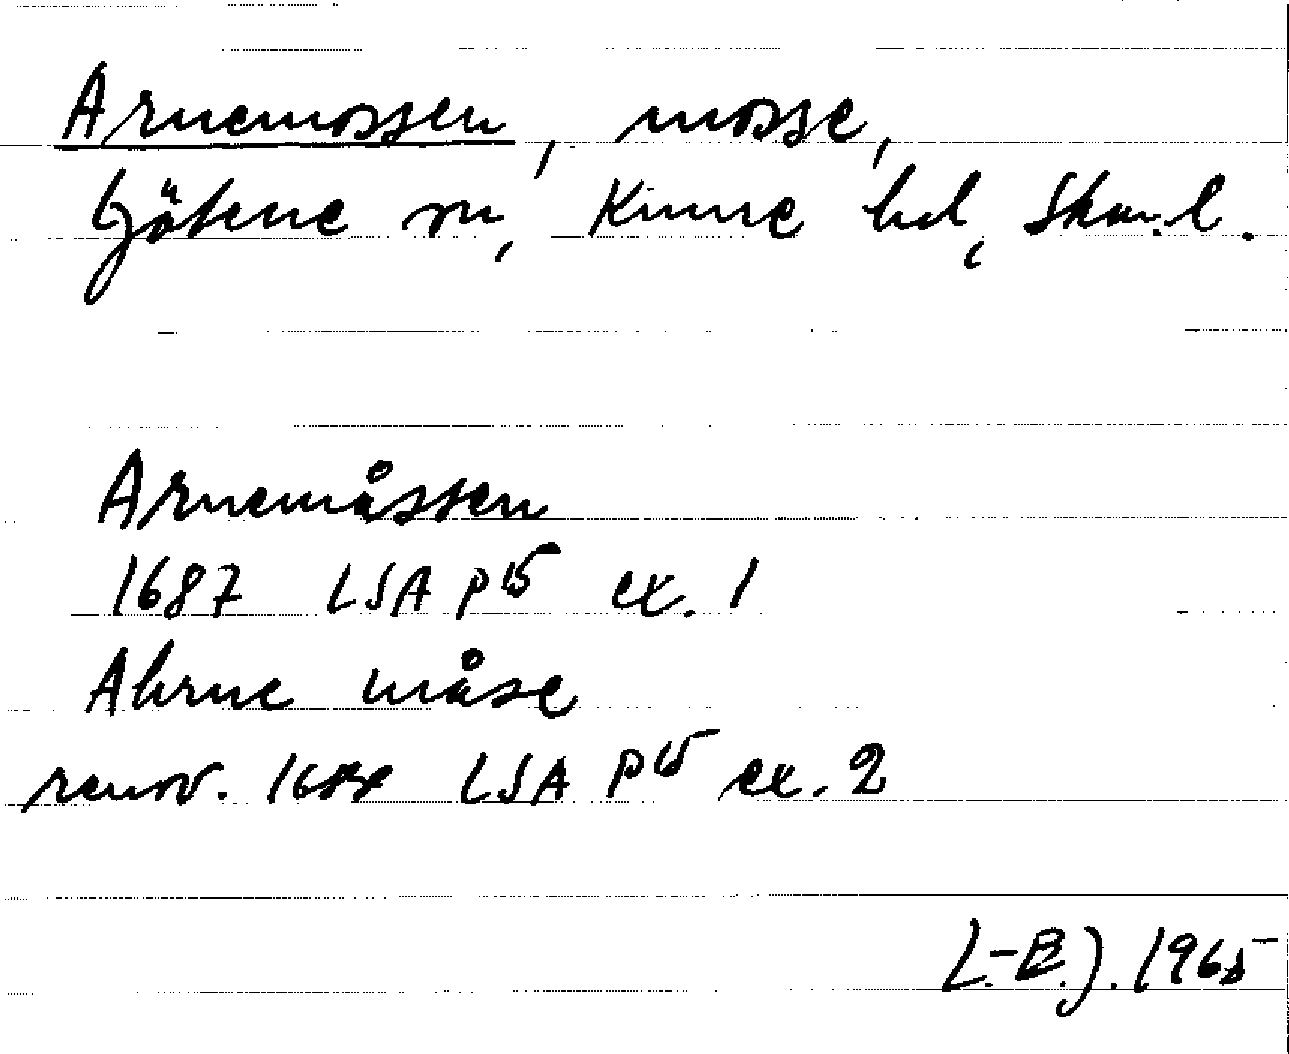 Arnemossen, mosse,
Götene sn, Kinne hd, Skar.l.
Arnemåssen
1687 LSA P15 ex. 1
Ahrne måse
renov. LSA P15 ex. 2
L.-E.J. 1965